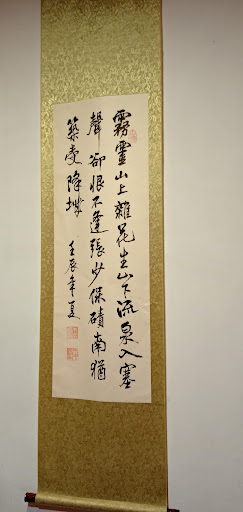 霧靈山上雜花生山下流泉入塞
聲卻恨不逢張少保磧南猶
築受降城
壬辰年夏